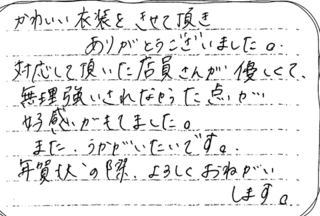 かわいい衣装をきせて頂き
ありがとうございました。
対応して頂いた店員さんが優しくて、
無理強いされなかった点が
好感がもてました。
また、うかがいたいです。
年賀状の際、よろしくおねがい
します。